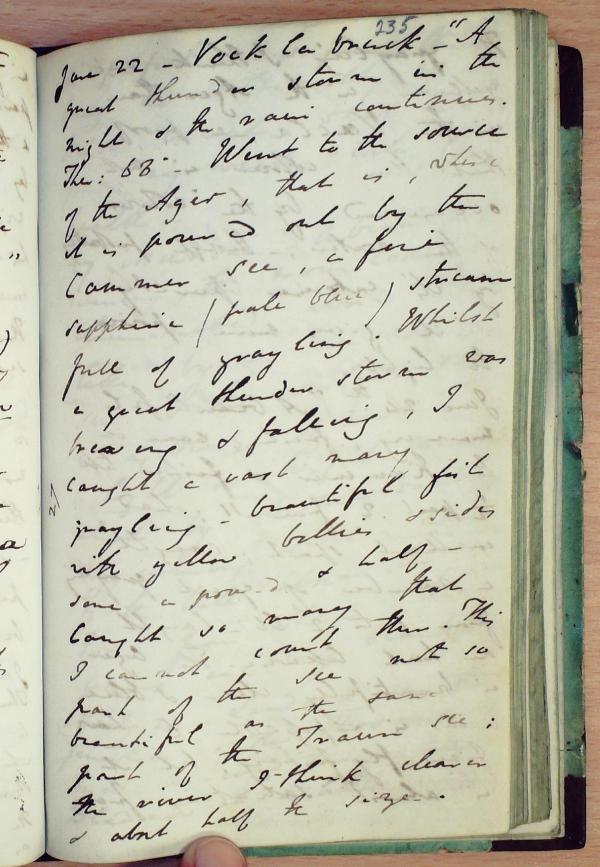 235
June 22 - Vock la bruck - "A
great thunder storm in the
night & the rain continues.
Ther: 63° - Went to the source
of the Ager, that is, where
it is poured out by the
Cammer see, a fine
sapphire (pale blue) stream
full of grayling. Whilst
a great thunder storm was
brewing & falling, I
caught a vast many
grayling - beautiful fish
with yellow bellies & sides
some a pound & half -
Caught so many that
I cannot count them. This
part of the see not so
beautiful as the same
part of the Traun see;
the river I think clearer
& about half the size.